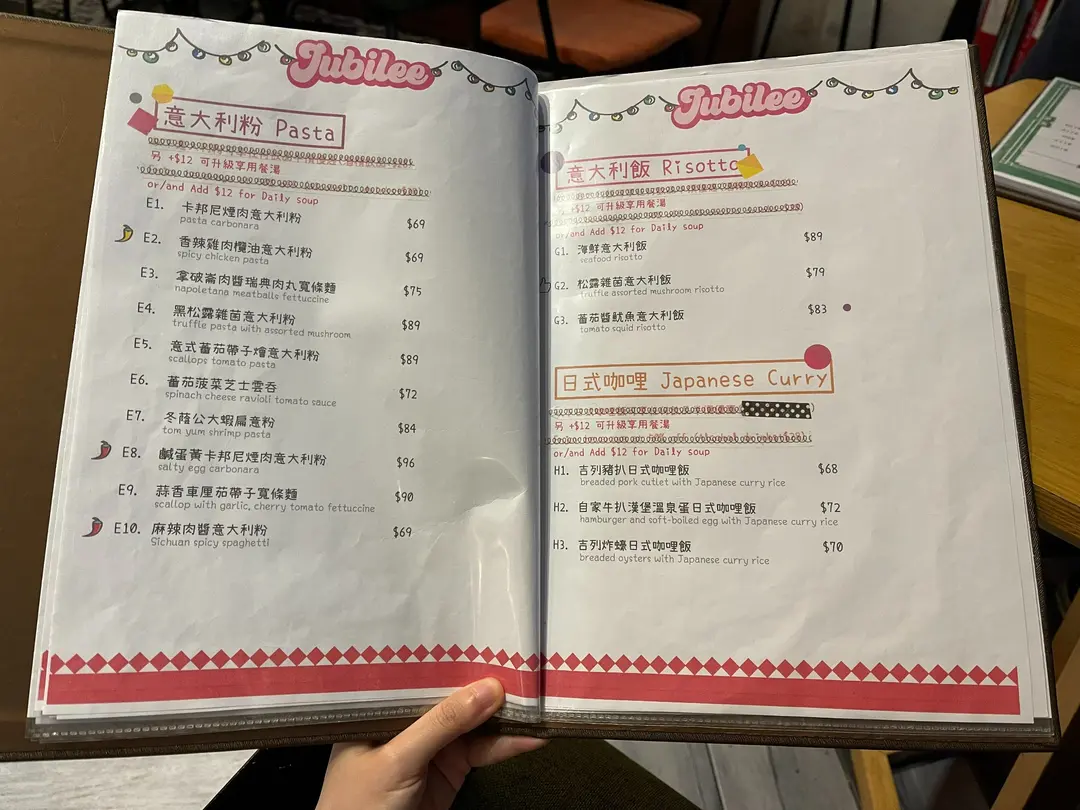 Jubilee
意大利粉 Pasta
另 +$12 可升級享用餐湯
or/and Add $12 for Daily soup
E1. 卡邦尼煙肉意大利粉 $69
pasta carbonara
E2. 香辣雞肉欖油意大利粉 $69
spicy chicken pasta
E3. 拿破崙肉醬瑞典肉丸寬條麵 $75
napoletana meatballs fettuccine
E4. 黑松露雜菌意大利粉 $89
truffle pasta with assorted mushroom
E5. 意式蕃茄帶子燴意大利粉 $89
scallops tomato pasta
E6. 蕃茄菠菜芝士雲吞 $72
spinach cheese ravioli tomato sauce
E7. 冬蔭公大蝦扁意粉 $84
tom yum shrimp pasta
E8. 鹹蛋黃卡邦尼煙肉意大利粉 $96
salty egg carbonara
E9. 蒜香車厘茄帶子寬條麵 $90
scallop with garlic, cherry tomato fettuccine
E10. 麻辣肉醬意大利粉 $69
Sichuan spicy spaghetti
Jubilee
意大利飯 Risotto
另 +$12 可升級享用餐湯
or/and Add $12 for Daily soup
G1. 海鮮意大利飯 $89
seafood risotto
G2. 松露雜菌意大利飯 $79
truffle assorted mushroom risotto
G3. 蕃茄醬魷魚意大利飯 $83
tomato squid risotto
日式咖哩 Japanese Curry
另 +$12 可升級享用餐湯
or/and Add $12 for Daily soup
H1. 吉列豬扒日式咖哩飯 $68
breaded pork cutlet with Japanese curry rice
H2. 自家牛扒漢堡溫泉蛋日式咖哩飯 $72
hamburger and soft-boiled egg with Japanese curry rice
H3. 吉列炸蠔日式咖哩飯 $70
breaded oysters with Japanese curry rice